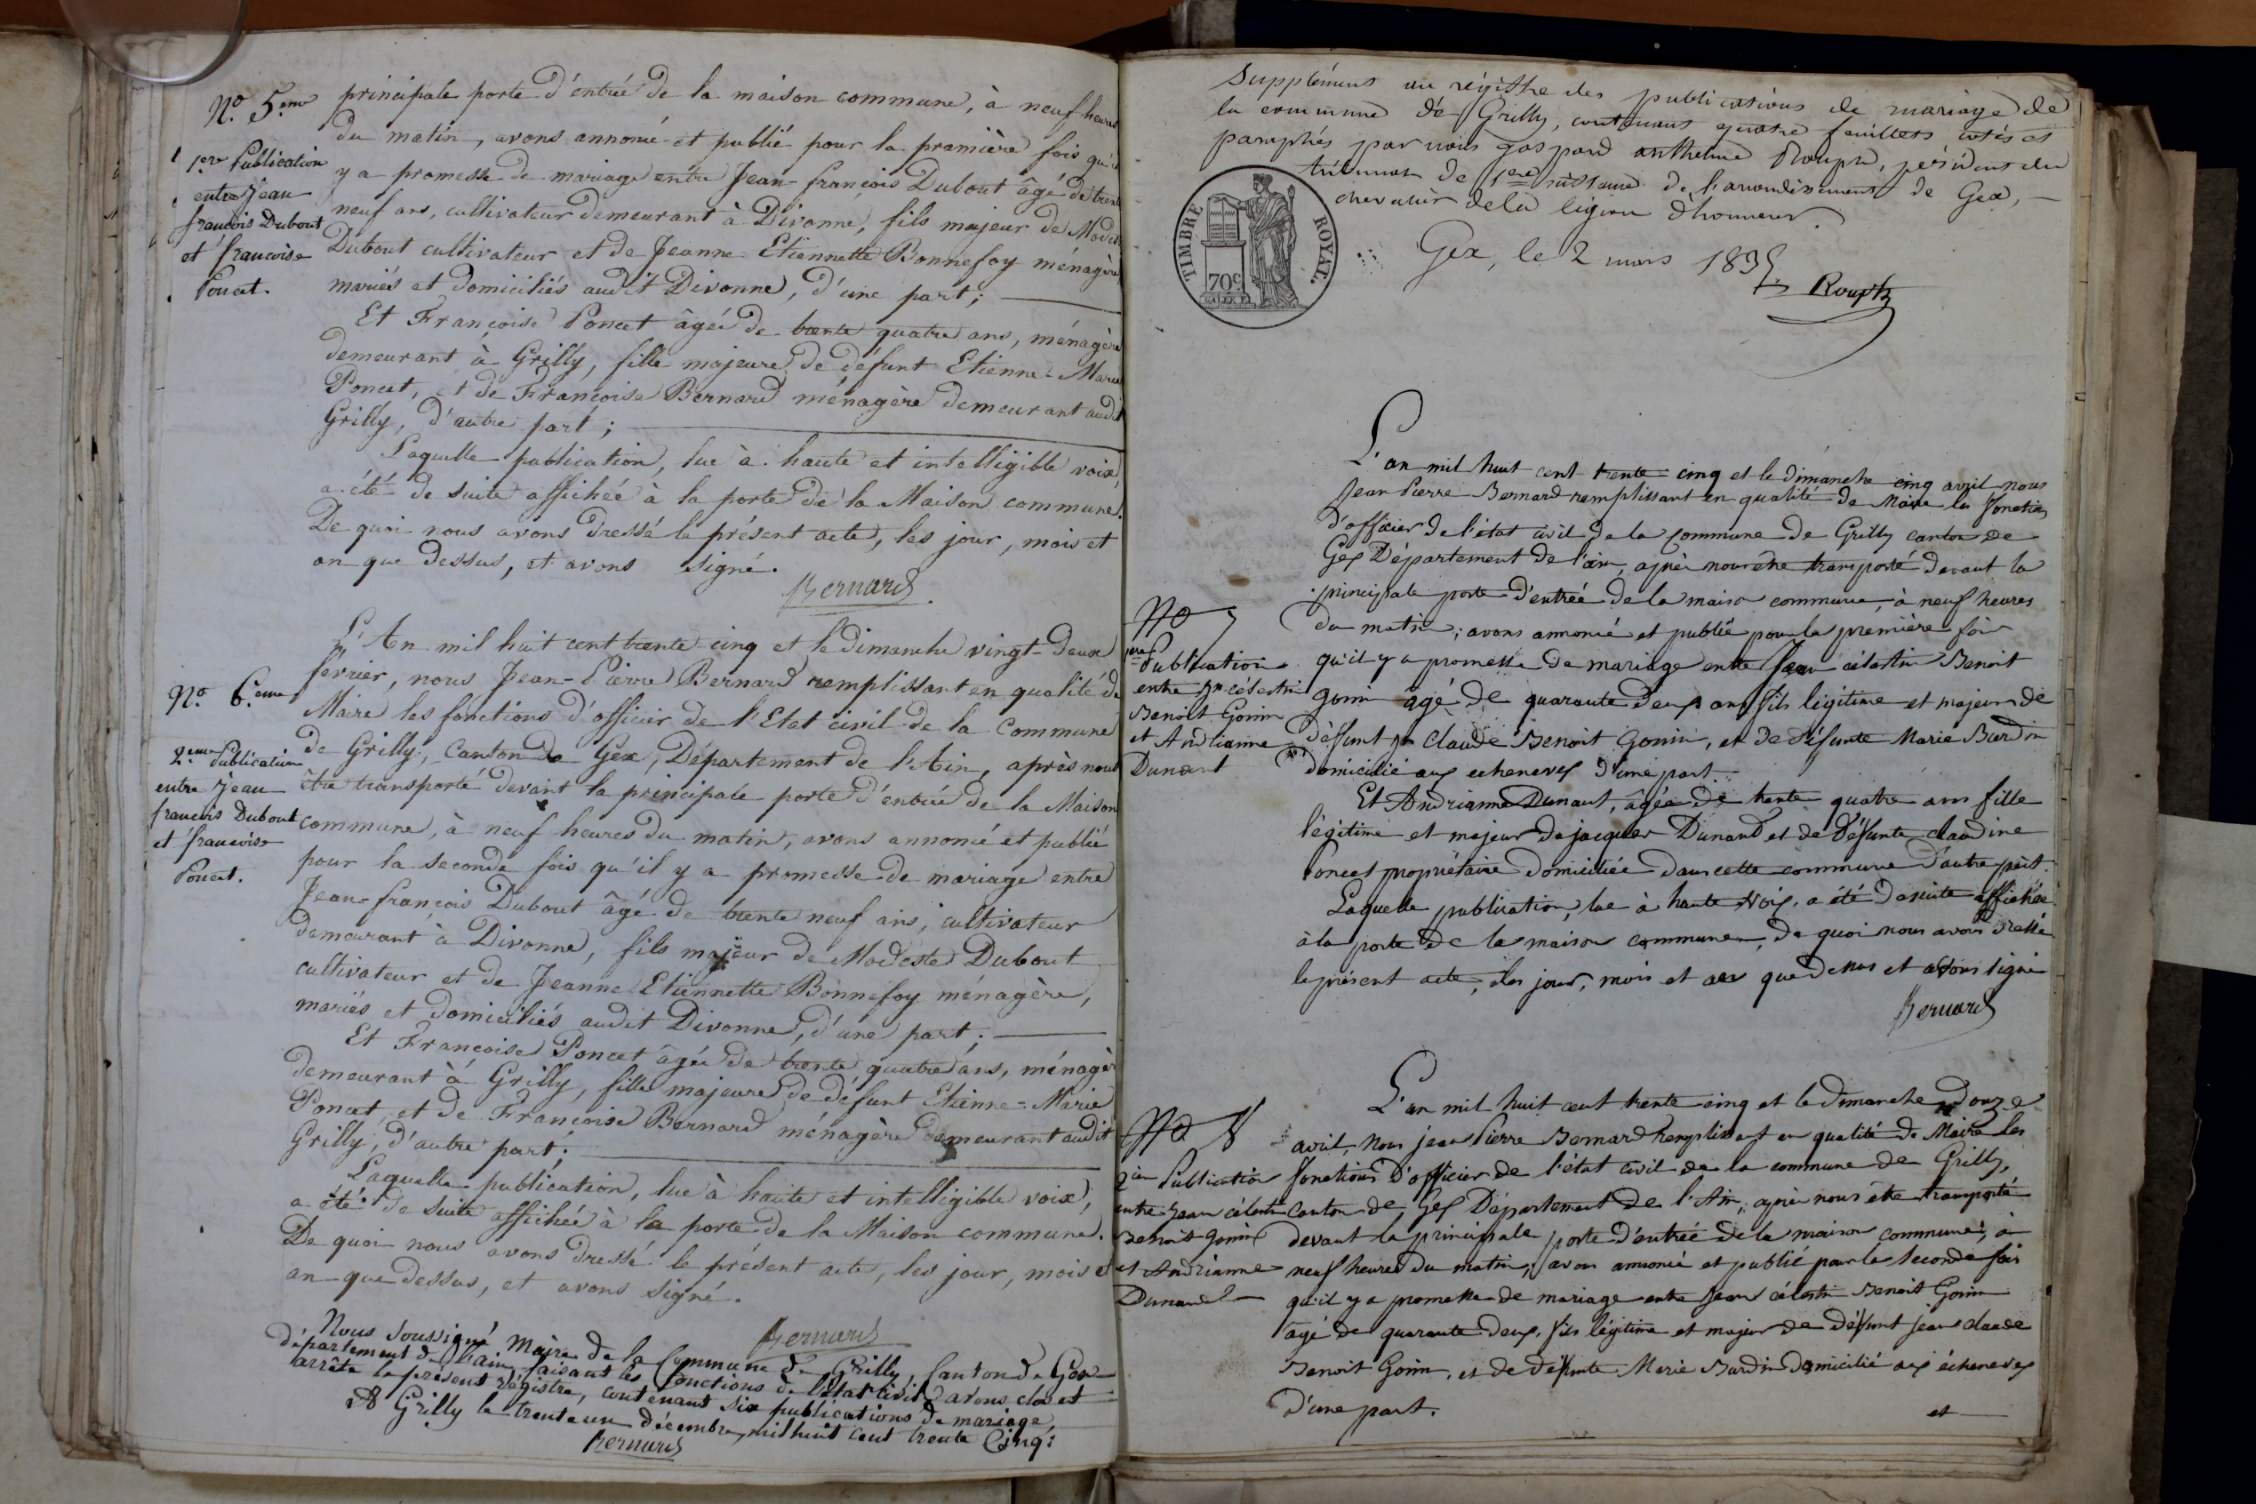 N.o 5.eme
1.ere Publication
entre Jean
françois Dubout
et françoise
Poncet.
principale porte d'entrée de la maison commune, à neuf heures
du matin, avons annoncé et publié pour la première fois qu'il
y a promesse de mariage entre Jean-françois Dubout âgé de trente
neuf ans, cultivateur demeurant à Divonne, fils majeur de Modeste
Dubout cultivateur et de Jeanne Etiennette Bonnefoy ménagère,
mariés et domiciliés audit Divonne, d'une part;
Et Françoise Poncet âgée de trente quatre ans, ménagère
demeurant à Grilly, fille majeure de défunt Etienne-Marie
Poncet, et de Françoise Bernard ménagère demeurant audit
Grilly, d'autre part;
Laquelle publication, lue à haute et intelligible voix,
a été de suite affichée à la porte de la Maison commune.
De quoi nous avons dressé le présent acte, les jour, mois et
an que dessus, et avons signé.
Bernard
N.o 6.eme
2.eme Publication
entre Jean
francois Dubout
et françoise
Poncet.
L'An mil huit cent trente-cinq et le dimanche vingt-deux
fevrier, nous Jean-Pierre Bernard remplissant en qualité de
Maire les fonctions d'officier de l'Etat civil de la Commune
de Grilly, Canton de Gex, Département de l'Ain, après nous
être transporté devant la principale porte d'entrée de la Maison
commune, à neuf heures du matin, avons annoncé et publié
pour la seconde fois qu'il y a promesse de mariage entre
Jean-françois Dubout âgé de trente neuf ans, cultivateur
demeurant à Divonne, fils majeur de Modeste Dubout
cultivateur et de Jeanne Etiennette Bonnefoy ménagère,
mariés et domiciliés audit Divonne, d'une part;
Et Françoise Poncet âgée de trente quatre ans, ménagère
demeurant à Grilly, fille majeure de défunt Etienne-Marie
Poncet, et de Françoise Bernard ménagère demeurant audit
Grilly, d'autre part;
Laquelle publication, lue à haute et intelligible voix,
a été de suite affichée à la porte de la Maison commune.
De quoi nous avons dressé le présent acte, les jour, mois et
an que dessus, et avons signé.
Bernard
Nous soussigné Maire de la Commune de Grilly, Canton de Gex
département de l'Ain, faisant les fonctions de l'état civil, avons clos et
arrêté le présent régistre, contenant six publications de mariage,
A Grilly le trente un décembre, mil huit cent trente cinq.
Bernard
Supplément au régistre des publications de mariage de
la commune de Grilly, contenant quatre feuillets cotés et
paraphés par nous gaspard anthelme Rouph, président du
tribunal de 1ere instance de l'arrondissement de Gex,
chevalier de la légion d'honneur
TIMBRE ROYAL.
70c
Gex, le 2 mars 1835
Rouph
No 7
1ere Publication
entre Jn célestin
Benoit Gonin
et Andrianne
Dunant
L'an mil huit cent trente cinq et le dimanche cinq avril nous
Jean Pierre Bernard remplissant en qualité de Maire les fonctions
d'officier de l'état civil de la commune de Grilly canton de
Gex Département de l'ain, après nous être transporté devant la
principale porte d'entrée de la maison commune, à neuf heures
du matin; avons annoncé et publié pour la première fois
qu'il y a promesse de mariage entre Jean célestin Benoit
gonin agé de quarante deux ans fils légitime et majeur de
défunt Jn Claude Benoit Gonin, et de défunte Marie Burdin
domicilié aux echenevex d'une part.
Et Andrianne Dunant, âgée de trente quatre ans fille
légitime et majeur de jacques Dunand et de défunte claudine
Poncet propriétaire domiciliée dans cette commune d'autre part.
Laquelle publication, lue à haute voix, a été de suite affichée
à la porte de la maison commune, de quoi nous avons dressé
le présent acte, les jour, mois et an que dessus et avons signé
Bernard
No 8
2ieme Publication
entre Jean célestin
Benoit gonin
et Andrianne
Dunand
L'an mil huit cent trente cinq et le dimanche Douze
avril, Nous jean Pierre Bernard remplissant en qualité de Maire les
fonctions D'officier de l'état civil de la commune de Grilly,
Canton de Gex Département de l'Ain, après nous être transporté
devant la principale porte d'entrée de la maison commune, à
neuf heures du matin, avons annoncé et publié pour la seconde fois
qu'il y a promesse de mariage entre Jean célestin Benoit Gonin
âgé de quarante deux, fils légitime et majeur de défunt jean claude
Benoit Gonin, et de défunte Marie Burdin domicilié aux échenevex
D'une part.
et